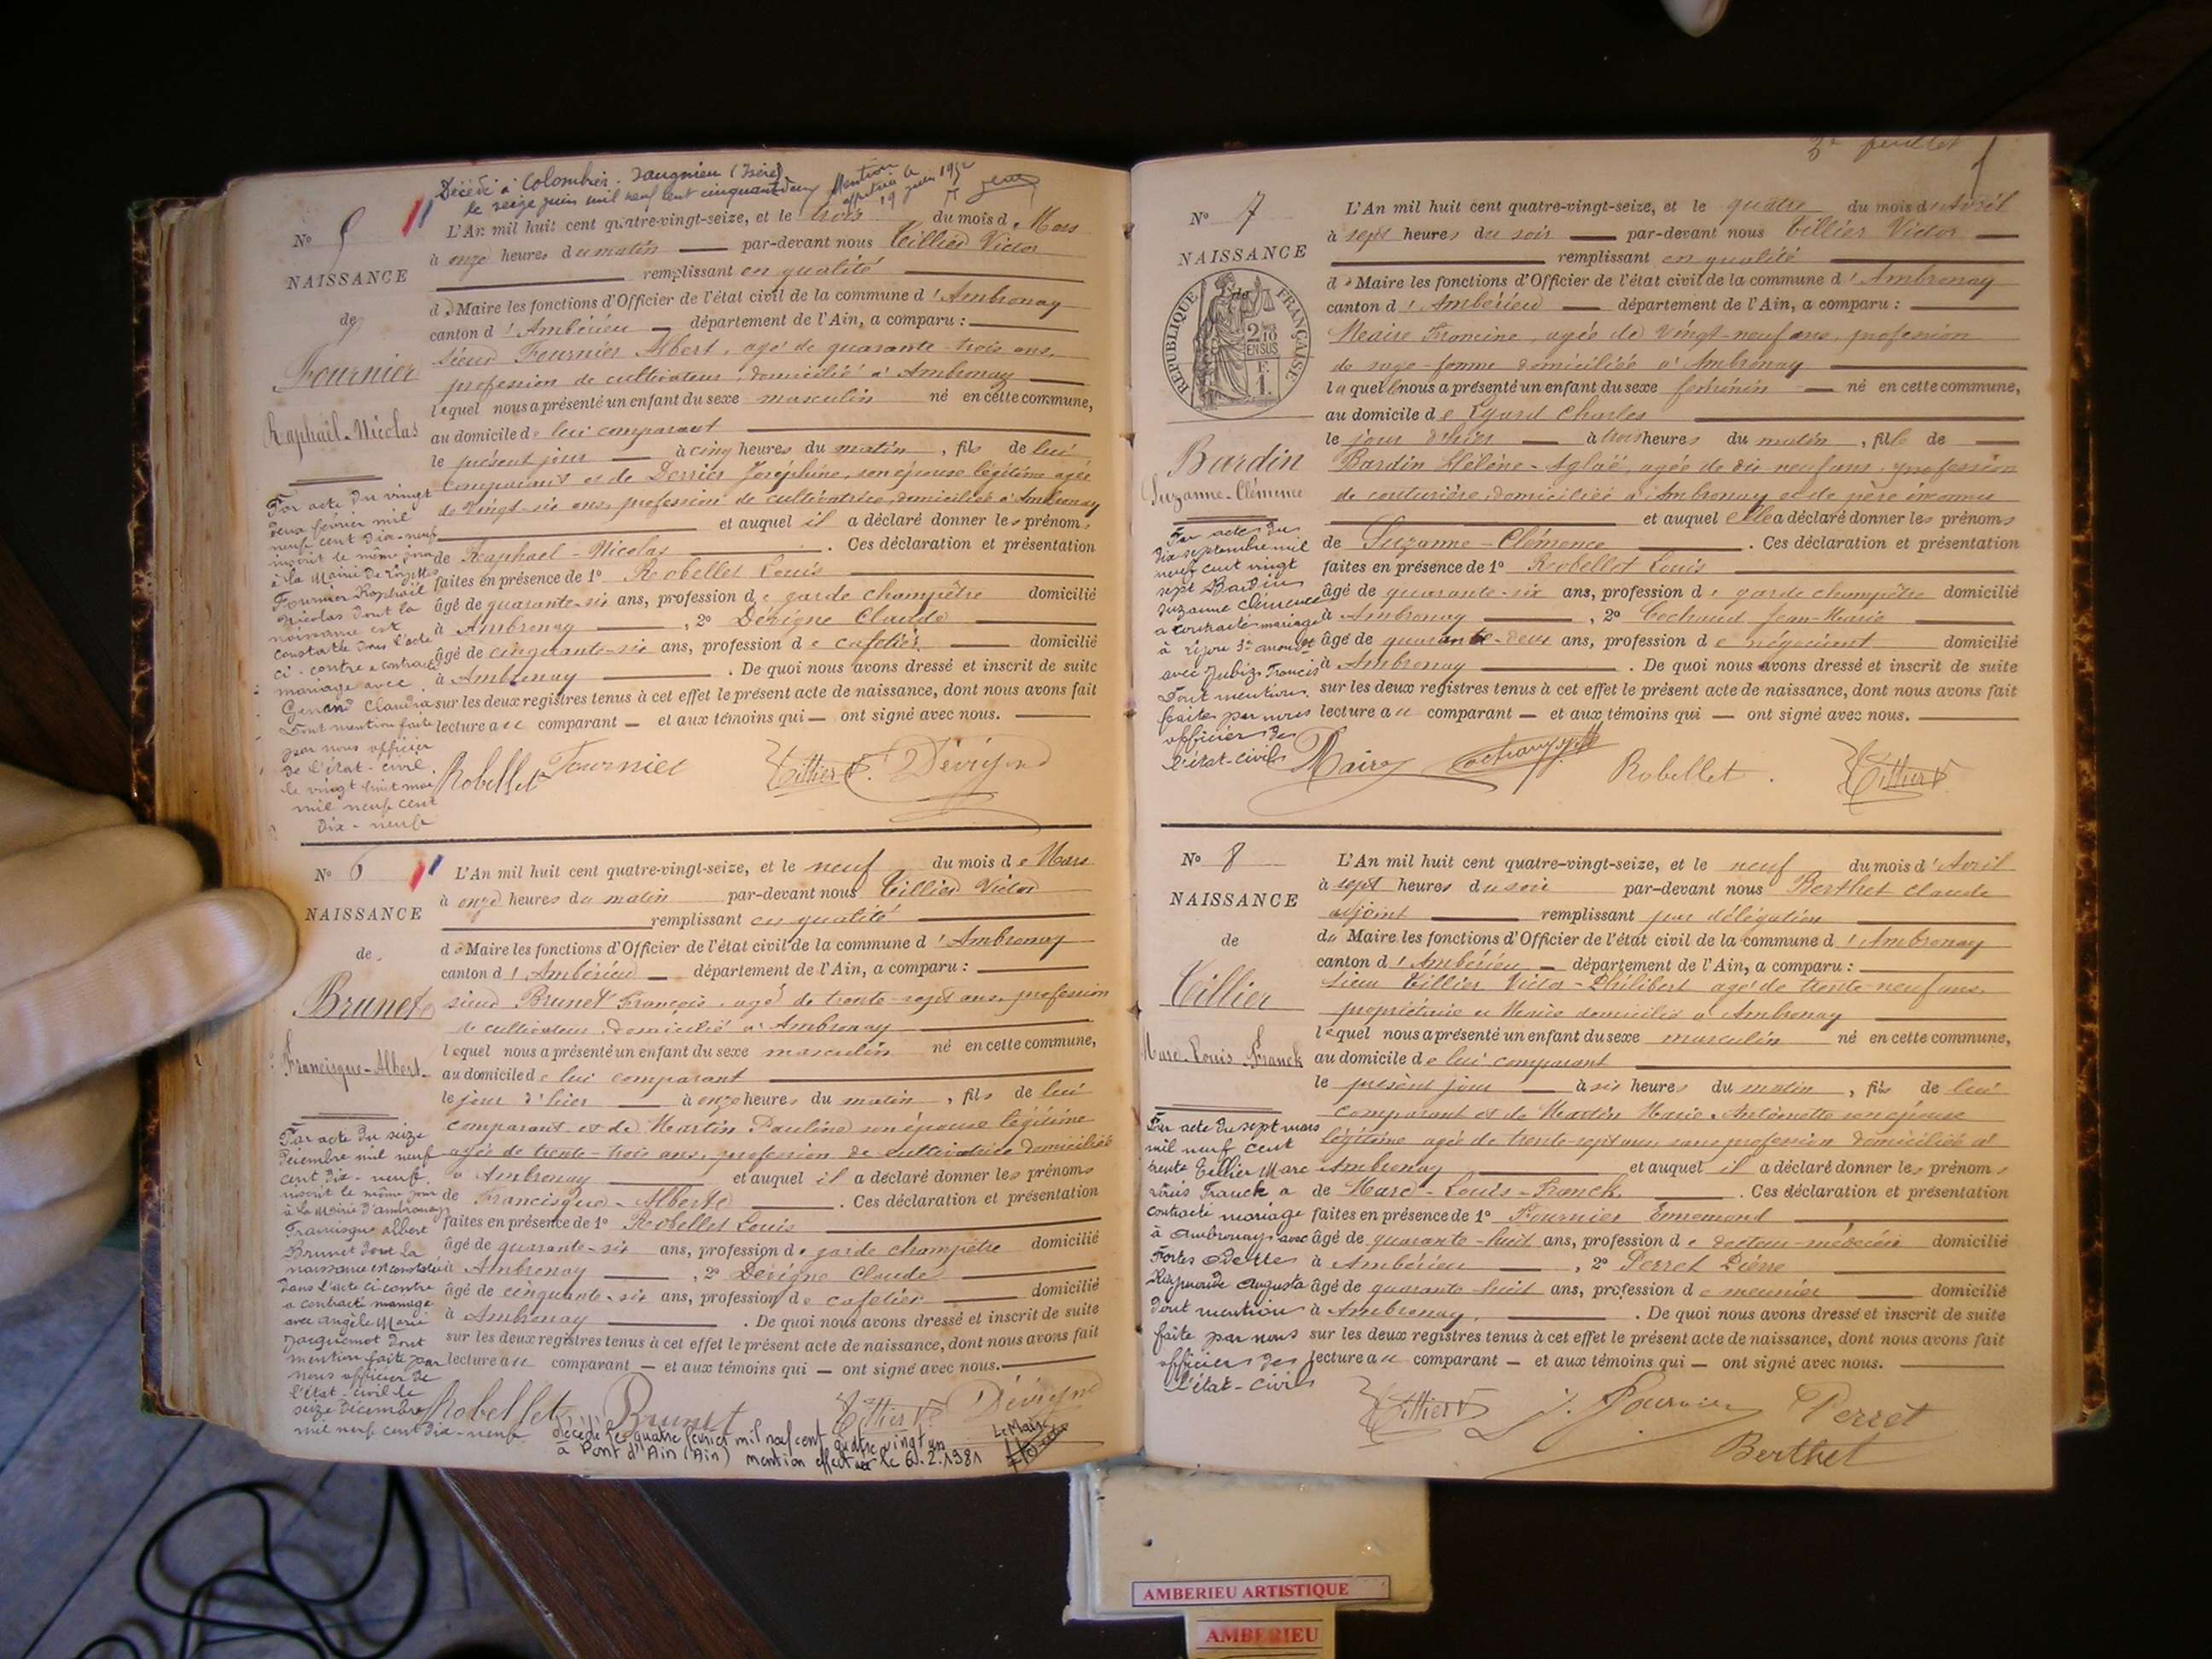 Décédé à Colombier-Saugnieu (Isère)
le seize juin mil neuf cent cinquante deux
Mention
19 juin 1952
N° 5
NAISSANCE
de
Fournier
Raphaël-Nicolas
L'An mil huit cent quatre-vingt-seize, et le trois du mois de Mars
à onze heures du matin par-devant nous Tillier Victor
remplissant en qualité
de Maire les fonctions d'Officier de l'état civil de la commune d'Ambronay
canton d'Ambérieu département de l'Ain, a comparu :
sieur Fournier Albert, agé de quarante-trois ans,
profession de cultivateur, domicilié à Ambronay
lequel nous a présenté un enfant du sexe masculin né en cette commune,
au domicile de lui comparant
le présent jour à cinq heures du matin, fils de lui
comparant et de Derrier Joséphine, son épouse légitime agée
de vingt-six ans, profession de cultivatrice, domiciliée à Ambronay
et auquel il a déclaré donner les prénoms
de Raphael-Nicolas. Ces déclaration et présentation
faites en présence de 1° Robellet Louis
âgé de quarante-six ans, profession de garde champêtre domicilié
à Ambronay, 2° Dévigne Claude
âgé de cinquante-six ans, profession de cafetier domicilié
à Ambronay. De quoi nous avons dressé et inscrit de suite
sur les deux registres tenus à cet effet le présent acte de naissance, dont nous avons fait
lecture au comparant et aux témoins qui ont signé avec nous.
Par acte du vingt
deux février mil
neuf cent dix-neuf
inscrit le même jour
à la Mairie de
Fournier Raphaël
Nicolas dont la
naissance est
constatée dans l'acte
ci-contre a contracté
mariage avec
Claudia
Dont mention faite
par nous officier
de l'état-civil
le vingt huit mai
mil neuf cent
dix-neuf
Robellet Fournier Tillier V. Dévigne
N° 6
NAISSANCE
de
Brunet
Francisque-Albert
L'An mil huit cent quatre-vingt-seize, et le neuf du mois de Mars
à onze heures du matin par-devant nous Tillier Victor
remplissant en qualité
de Maire les fonctions d'Officier de l'état civil de la commune d'Ambronay
canton d'Ambérieu département de l'Ain, a comparu :
sieur Brunet François, agé de trente-sept ans, profession
de cultivateur, domicilié à Ambronay
lequel nous a présenté un enfant du sexe masculin né en cette commune,
au domicile de lui comparant
le jour d'hier à onze heures du matin, fils de lui
comparant et de Martin Pauline son épouse légitime
agée de trente-trois ans, profession de cultivatrice domiciliée
à Ambronay et auquel il a déclaré donner les prénoms
de Francisque-Alberte. Ces déclaration et présentation
faites en présence de 1° Robellet Louis
âgé de quarante-six ans, profession de garde champêtre domicilié
à Ambronay, 2° Dévigne Claude
âgé de cinquante-six ans, profession de cafetier domicilié
à Ambronay. De quoi nous avons dressé et inscrit de suite
sur les deux registres tenus à cet effet le présent acte de naissance, dont nous avons fait
lecture au comparant et aux témoins qui ont signé avec nous.
Par acte du seize
décembre mil neuf
cent dix-neuf,
inscrit le même jour
à la Mairie d'ambronay
Francisque albert
Brunet dont la
naissance est constatée
dans l'acte ci-contre
a contracté mariage
avec angèle Marie
Jacquemot dont
mention faite par
nous officier de
l'état-civil le
seize décembre
mil neuf cent dix-neuf
Robellet Brunet Tillier V. Dévigne
Décédé le quatre février mil neuf cent quatre vingt un
à Pont d'Ain (Ain) mention effectuée le 6.2.1981
Le Maire
3e feuillet
N° 7
NAISSANCE
de
RÉPUBLIQUE FRANÇAISE
2/10
EN SUS
F.
1.
Bardin
Suzanne-Clémence
L'An mil huit cent quatre-vingt-seize, et le quatre du mois d'Avril
à sept heures du soir par-devant nous Tillier Victor
remplissant en qualité
de Maire les fonctions d'Officier de l'état civil de la commune d'Ambronay
canton d'Ambérieu département de l'Ain, a comparu :
Maire Francine, agée de vingt-neuf ans, profession
de sage-femme domiciliée à Ambronay
laquelle nous a présenté un enfant du sexe féminin né en cette commune,
au domicile de Eyard Charles
le jour d'hier à trois heures du matin, fille de
Bardin Hélène-Aglaë, agée de dix-neuf ans, profession
de couturière, domiciliée à Ambronay et de père inconnu
et auquel elle a déclaré donner les prénoms
de Suzanne-Clémence. Ces déclaration et présentation
faites en présence de 1° Robellet Louis
âgé de quarante-six ans, profession de garde champêtre domicilié
à Ambronay, 2° Cochaud Jean-Marie
âgé de quarante-deux ans, profession de négociant domicilié
à Ambronay. De quoi nous avons dressé et inscrit de suite
sur les deux registres tenus à cet effet le présent acte de naissance, dont nous avons fait
lecture au comparant et aux témoins qui ont signé avec nous.
Par acte du
dix septembre mil
neuf cent vingt
sept Bardin
Suzanne Clémence
a contracté mariage
à
avec Francis
Dont mention
faite par nous
officier de
l'état-civil
Maire Robellet Tillier V
N° 8
NAISSANCE
de
Tillier
Marc-Louis-Franck
L'An mil huit cent quatre-vingt-seize, et le neuf du mois d'Avril
à sept heures du soir par-devant nous Berthet Claude
adjoint remplissant par délégation
du Maire les fonctions d'Officier de l'état civil de la commune d'Ambronay
canton d'Ambérieu département de l'Ain, a comparu :
sieur Tillier Victor-Philibert agé de trente-neuf ans,
propriétaire et Maire domicilié à Ambronay
lequel nous a présenté un enfant du sexe masculin né en cette commune,
au domicile de lui comparant
le présent jour à six heures du matin, fils de lui
comparant et de Martin Marie-Antoinette son épouse
légitime agée de trente-sept ans, sans profession domiciliée à
Ambronay et auquel il a déclaré donner les prénoms
de Marc-Louis-Franck. Ces déclaration et présentation
faites en présence de 1° Fournier Ennemond
âgé de quarante-huit ans, profession de docteur-médecin domicilié
à Ambérieu, 2° Perret Pierre
âgé de quarante-huit ans, profession de meunier domicilié
à Ambronay. De quoi nous avons dressé et inscrit de suite
sur les deux registres tenus à cet effet le présent acte de naissance, dont nous avons fait
lecture au comparant et aux témoins qui ont signé avec nous.
Par acte du sept mars
mil neuf cent
trente Tillier Marc
Louis Franck a
contracté mariage
à Ambronay avec
Fortes Odette
Raymonde Augusta
dont mention
faite par nous
officier de
l'état-civil
Tillier V J. Fournier Perret
Berthet
AMBERIEU ARTISTIQUE
AMBERIEU